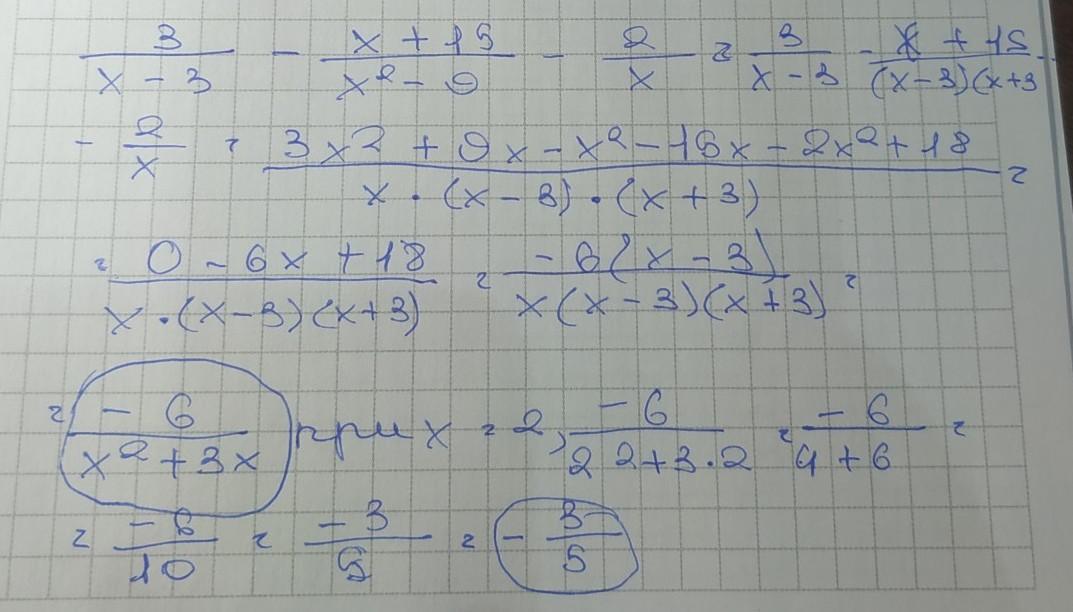 3/(x - 3) - (x + 15)/(x² - 9) - 2/x = 3/(x - 3) - (x + 15)/((x-3)(x+3
- 2/x = (3x² + 9x - x² - 15x - 2x² + 18)/(x · (x - 3) · (x + 3)) =
= (0 - 6x + 18)/(x · (x - 3)(x+3)) = (-6(x - 3))/(x(x - 3)(x + 3)) =
= (-6)/(x² + 3x) при x = 2, (-6)/(2² + 3·2) = (-6)/(4 + 6) =
= (-6)/10 = (-3)/5 = - 3/5